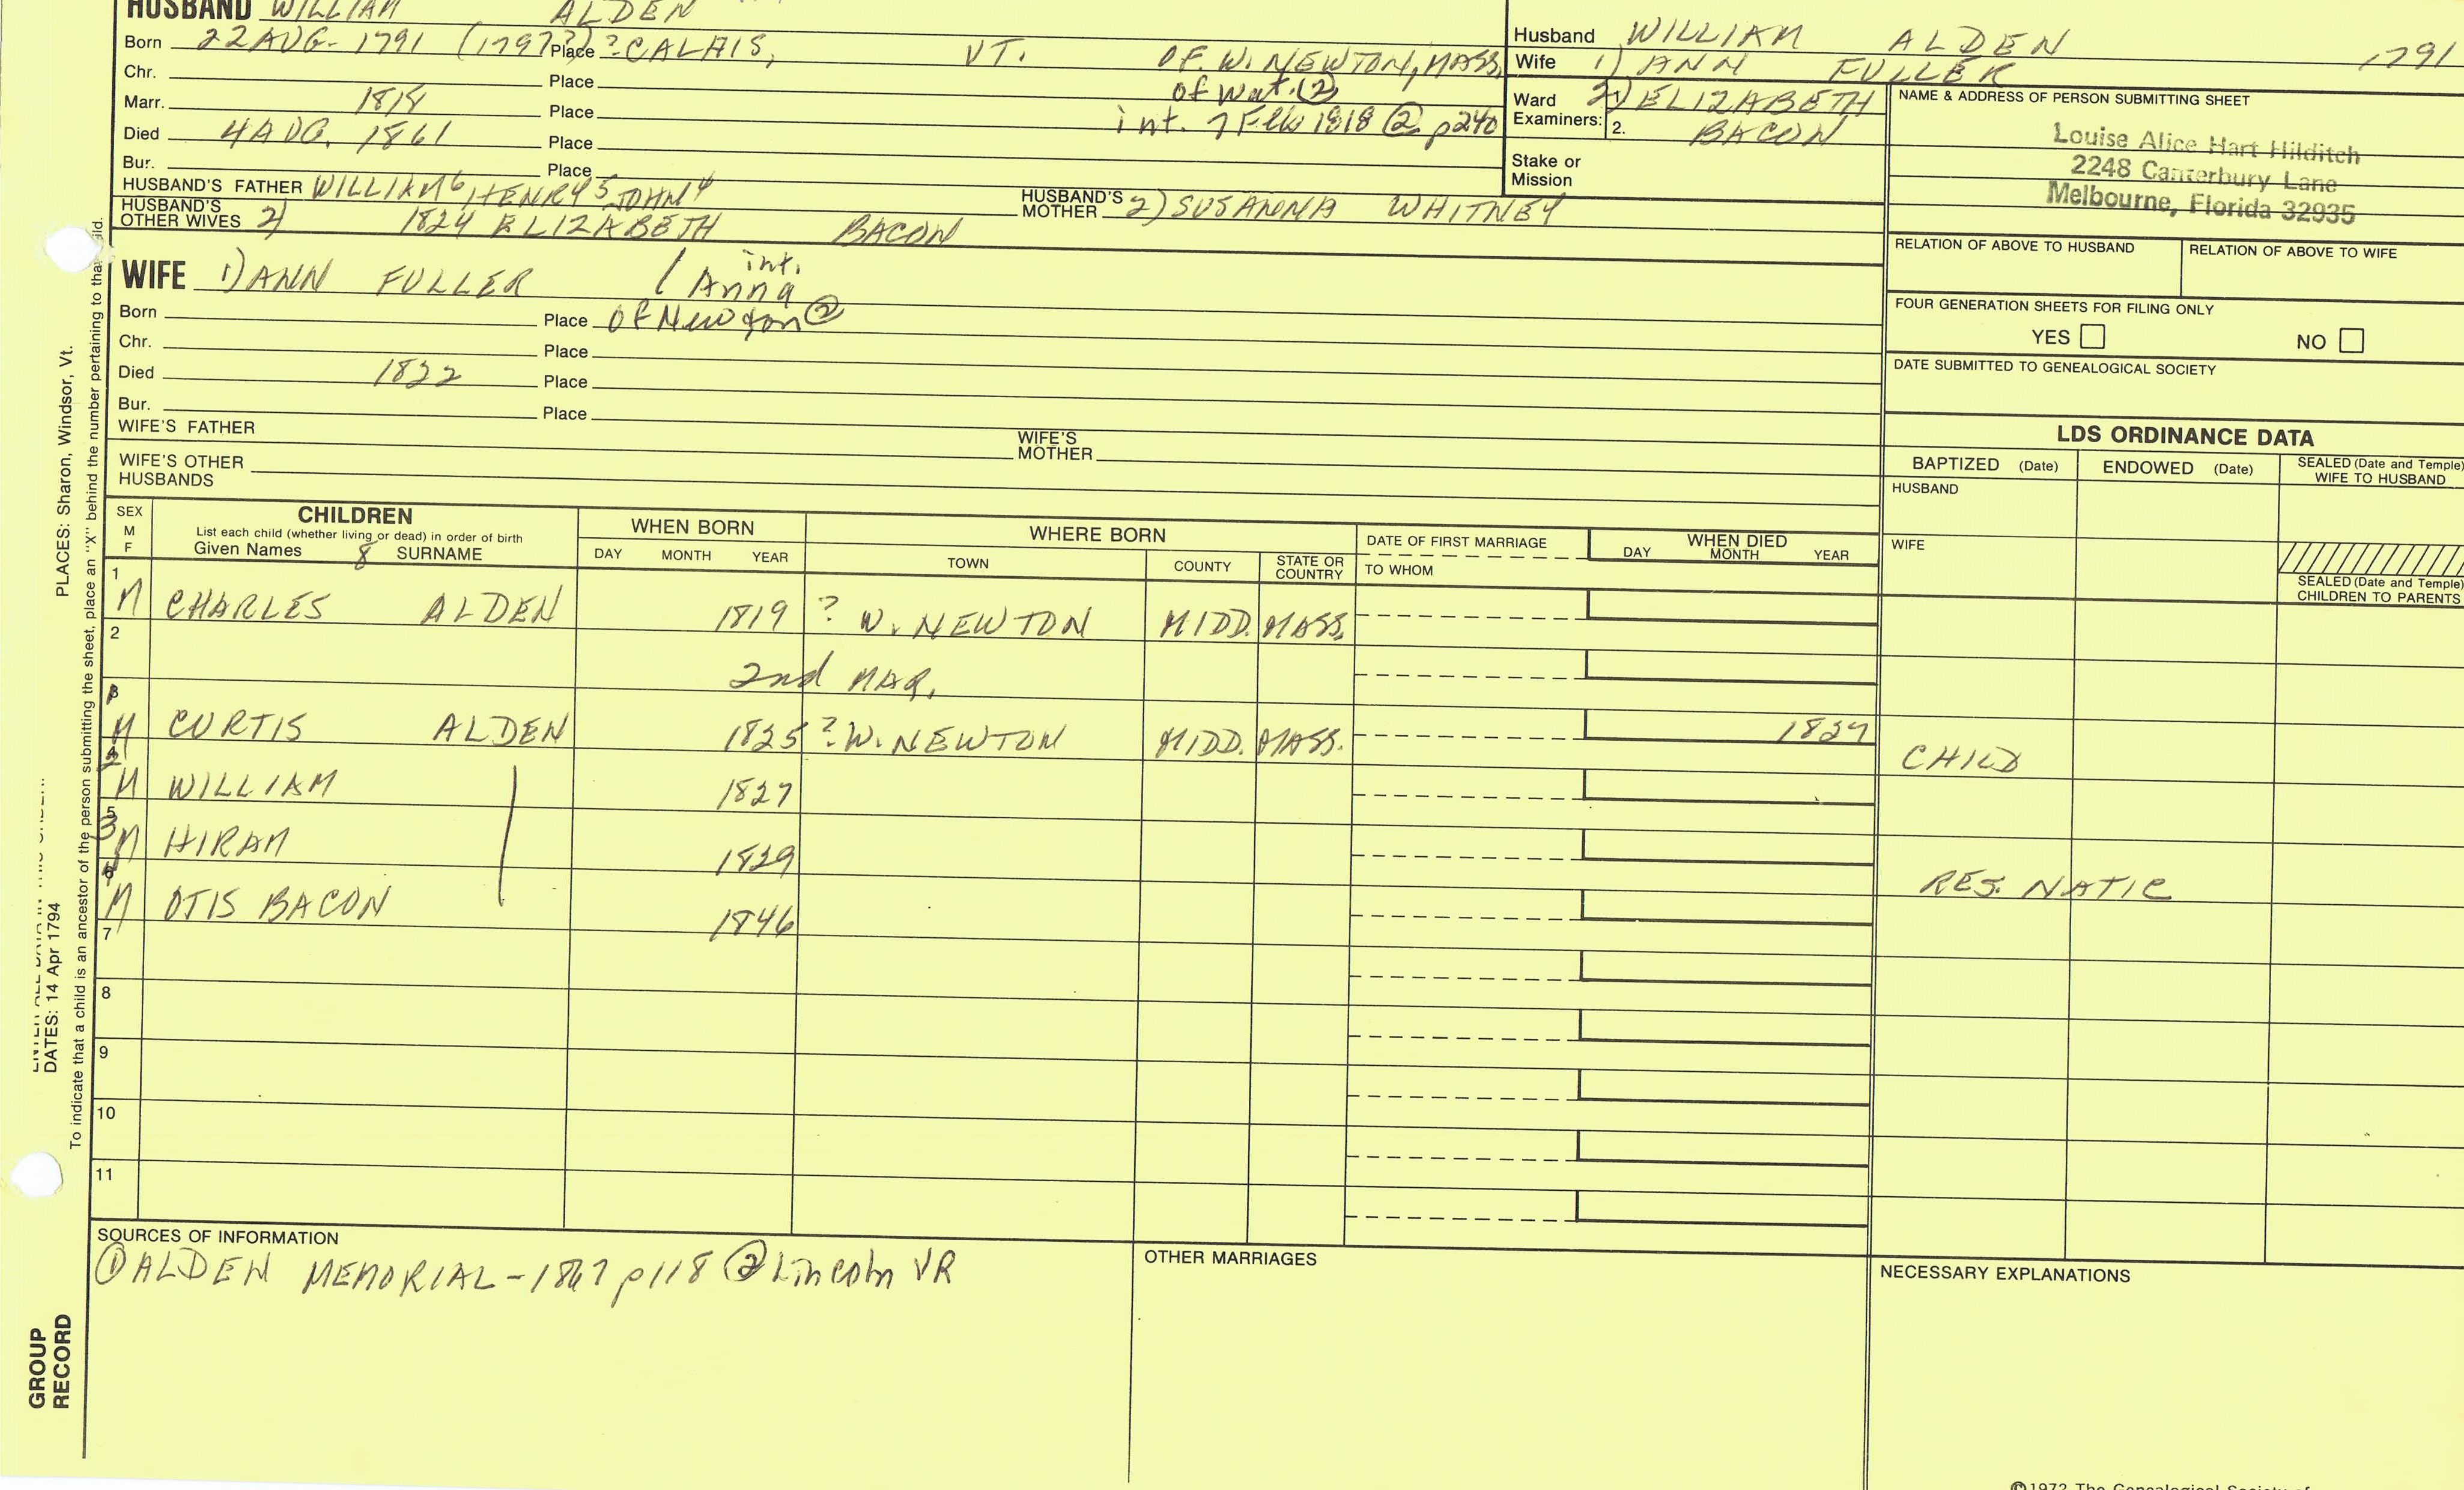 HUSBAND WILLIAM ALDEN
Born 22 AUG. 1791 (1797?) Place ? CALAIS, VT. OF W. NEWTON, MASS.
Chr. Place of Wat. (2)
Marr. 1818 Place int. 7 Feb 1818 (2) p240
Died 4 AUG. 1861 Place
Bur. Place
HUSBAND'S FATHER WILLIAM6, HENRY5 JOHN4 HUSBAND'S MOTHER 2) SUSANNA WHITNEY
HUSBAND'S OTHER WIVES 2) 1824 ELIZABETH BACON
Husband WILLIAM ALDEN 1791
Wife 1) ANN FULLER
Ward 2) ELIZABETH
Examiners: 2. BACON
Stake or
Mission
NAME & ADDRESS OF PERSON SUBMITTING SHEET
Louise Alice Hart Hilditch
2248 Canterbury Lane
Melbourne, Florida 32935
RELATION OF ABOVE TO HUSBAND RELATION OF ABOVE TO WIFE
FOUR GENERATION SHEETS FOR FILING ONLY
YES NO
DATE SUBMITTED TO GENEALOGICAL SOCIETY
WIFE 1) ANN FULLER / int. Anna
Born Place of Newton (2)
Chr. Place
Died 1822 Place
Bur. Place
WIFE'S FATHER WIFE'S MOTHER
WIFE'S OTHER HUSBANDS
LDS ORDINANCE DATA
BAPTIZED (Date) ENDOWED (Date) SEALED (Date and Temple) WIFE TO HUSBAND
HUSBAND
WIFE
SEALED (Date and Temple) CHILDREN TO PARENTS
SEX M F
CHILDREN
List each child (whether living or dead) in order of birth
Given Names 8 SURNAME
WHEN BORN
DAY MONTH YEAR
WHERE BORN
TOWN COUNTY STATE OR COUNTRY
DATE OF FIRST MARRIAGE
TO WHOM
WHEN DIED
DAY MONTH YEAR
1 M CHARLES ALDEN 1819 ? W. NEWTON MIDD. MASS.
2 2nd MAR.
3 M CURTIS ALDEN 1825 ? W. NEWTON MIDD. MASS. 1827 CHILD
4 2 M WILLIAM 1827
5 3 M HIRAM 1829
6 4 M OTIS BACON 1846 RES. NATIC
7
8
9
10
11
SOURCES OF INFORMATION
① ALDEN MEMORIAL - 1867 p118 ② Lincoln VR
OTHER MARRIAGES
NECESSARY EXPLANATIONS
©1972 The Genealogical Society of
PLACES: Sharon, Windsor, Vt.
DATES: 14 Apr 1794
To indicate that a child is an ancestor of the person submitting the sheet, place an "X" behind the number pertaining to that child.
GROUP
RECORD